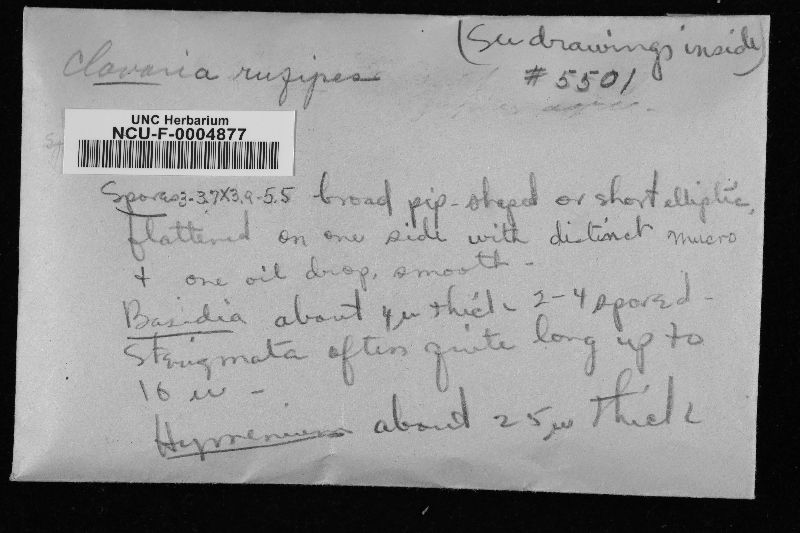 (See drawings inside)
Clavaria rufipes
# 5501
UNC Herbarium
NCU-F-0004877
Spores 3-3.7x3.9-5.5 broad pip-shaped or short elliptic,
flattened on one side with distinct mucro
+ one oil drop, smooth -
Basidia about 4µ thick 2-4 spored -
Sterigmata often quite long up to
10 µ -
Hymenium about 25µ thick